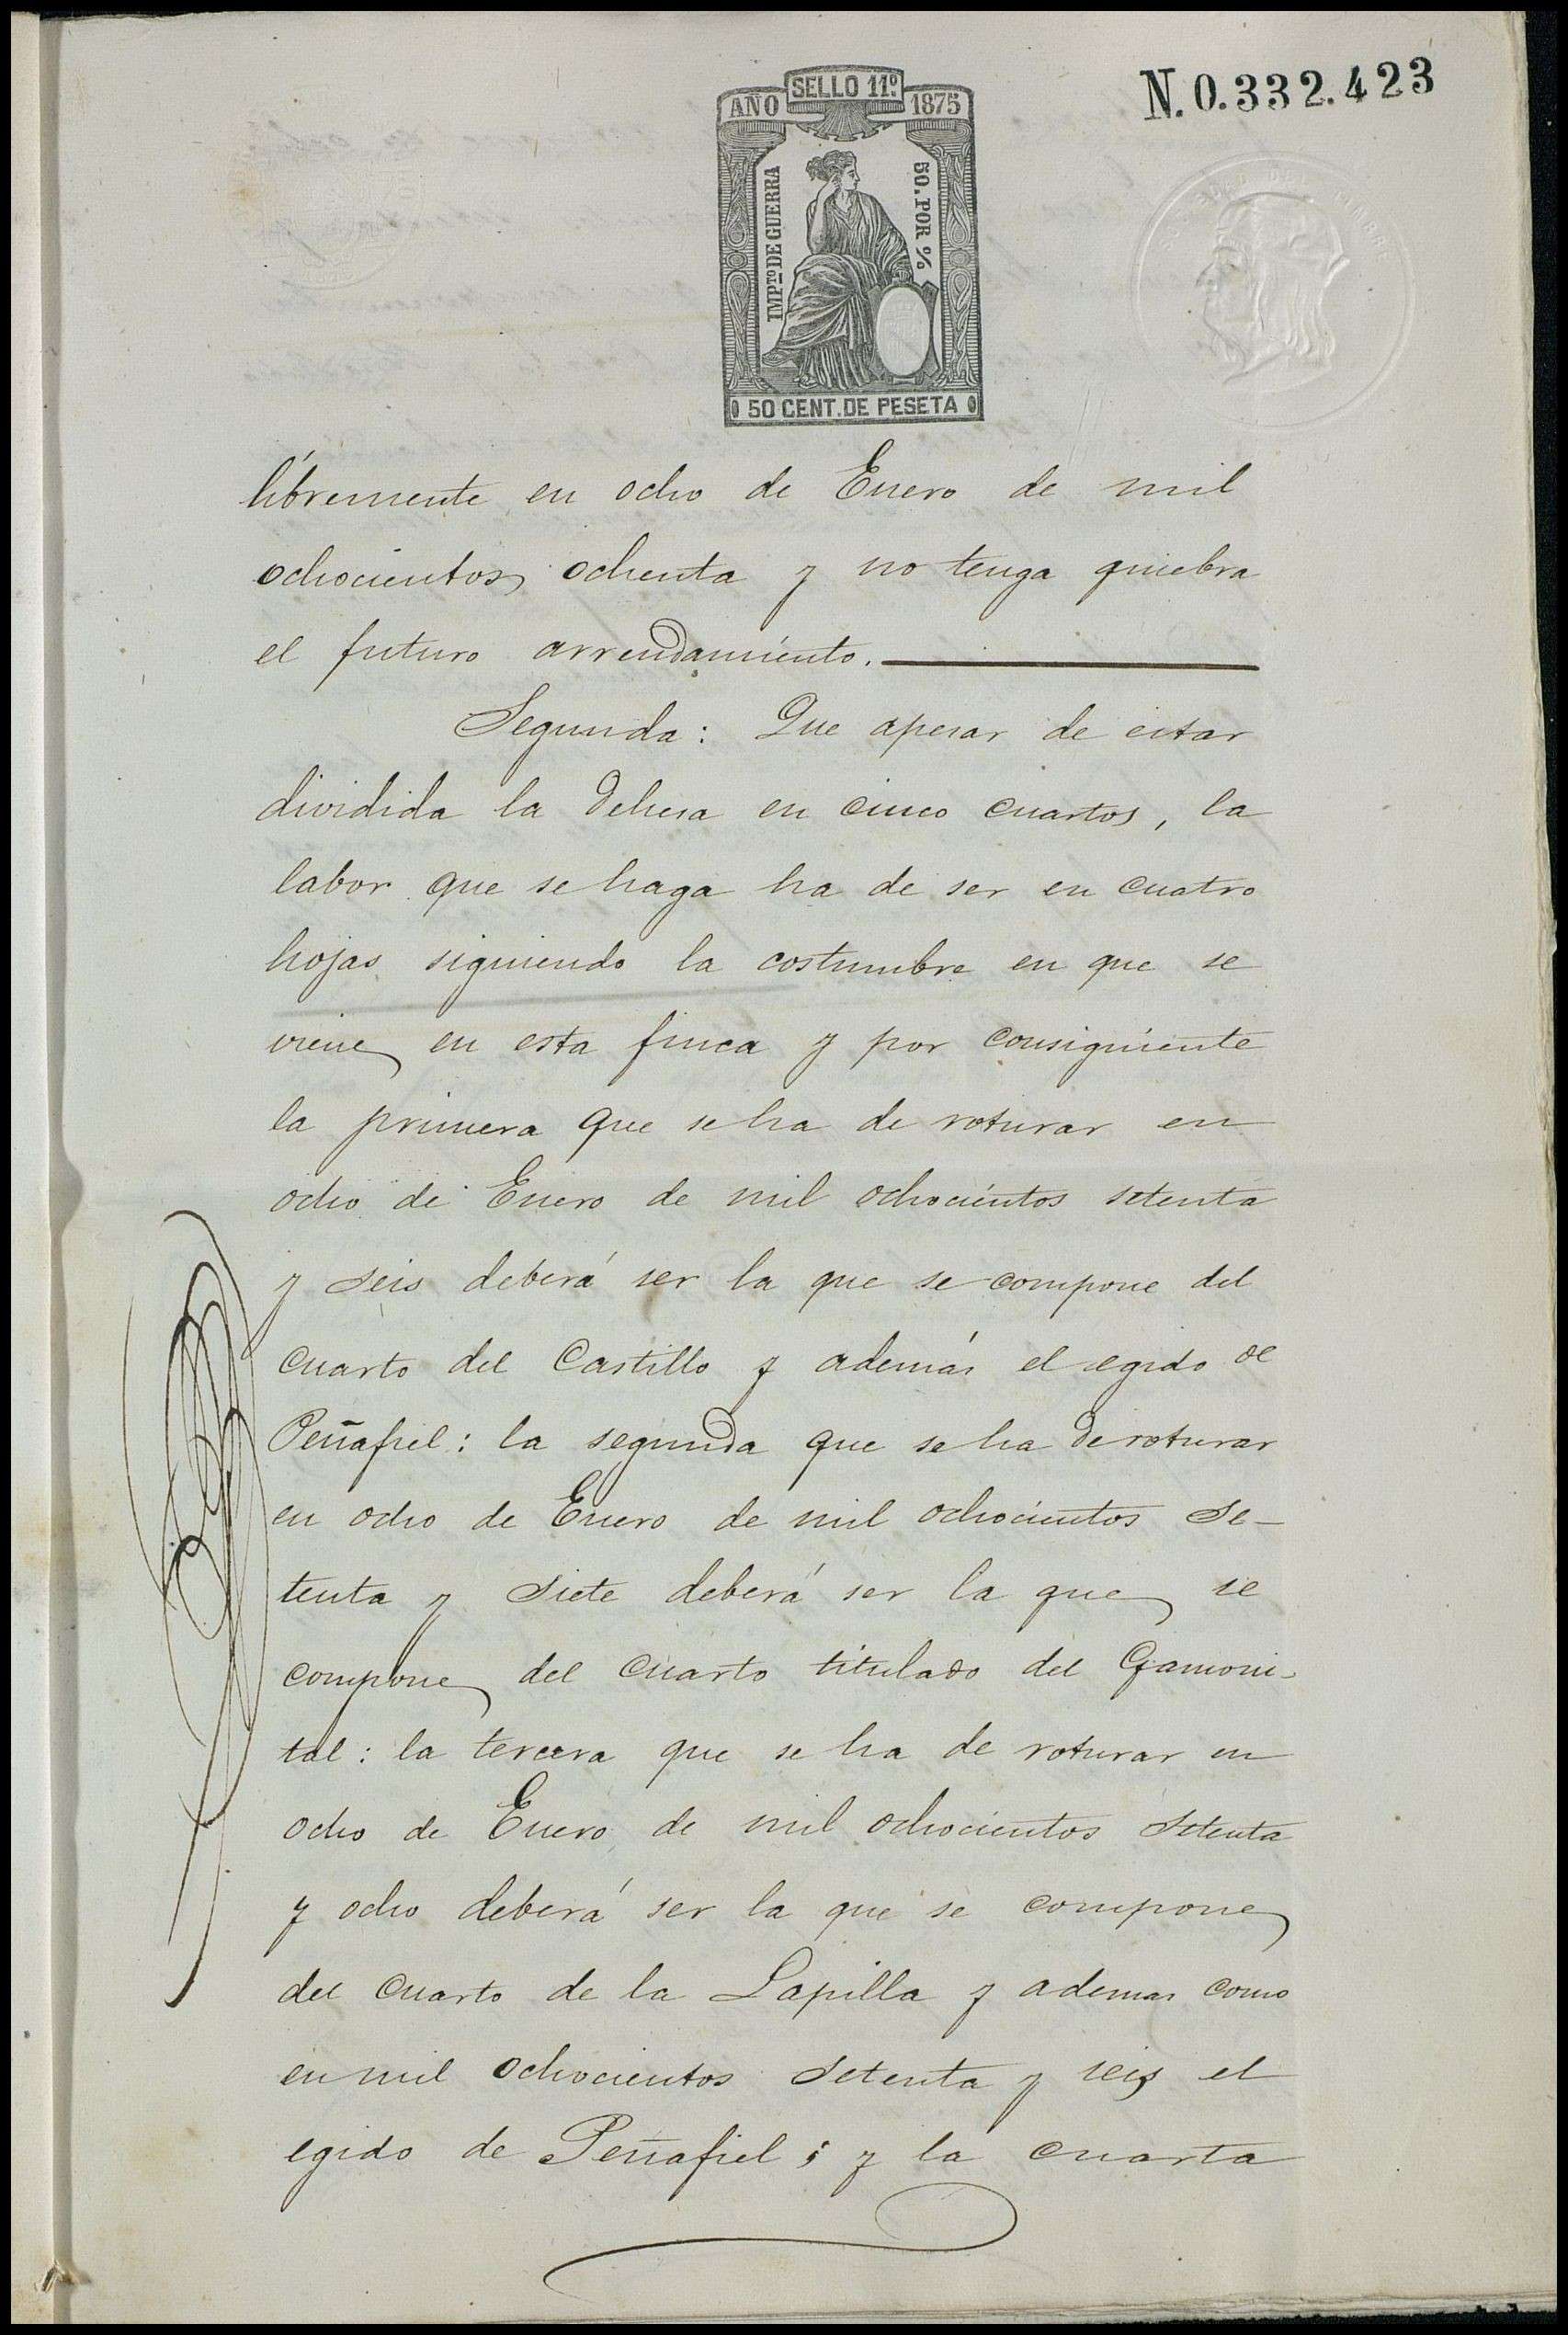 N. 0.332.423
SELLO 11º
AÑO 1875
IMPTO DE GUERRA
50. POR %
50 CENT. DE PESETA
libremente en ocho de Enero de mil
ochocientos ochenta y no tenga quiebra
el futuro arrendamiento.
Segunda: Que apesar de estar
dividida la dehesa en cinco cuartos, la
labor que se haga ha de ser en cuatro
hojas siguiendo la costumbre en que se
viene en esta finca y por consiguiente
la primera que se ha de roturar en
ocho de Enero de mil ochocientos setenta
y seis deberá ser la que se compone del
cuarto del Castillo y además el egido de
Peñafiel: la segunda que se ha de roturar
en ocho de Enero de mil ochocientos se-
tenta y siete deberá ser la que se
compone del cuarto titulado del Gamoni-
tal: la tercera que se ha de roturar en
ocho de Enero de mil ochocientos setenta
y ocho deberá ser la que se compone
del cuarto de la Lapilla y ademas como
en mil ochocientos setenta y seis el
egido de Peñafiel; y la cuarta